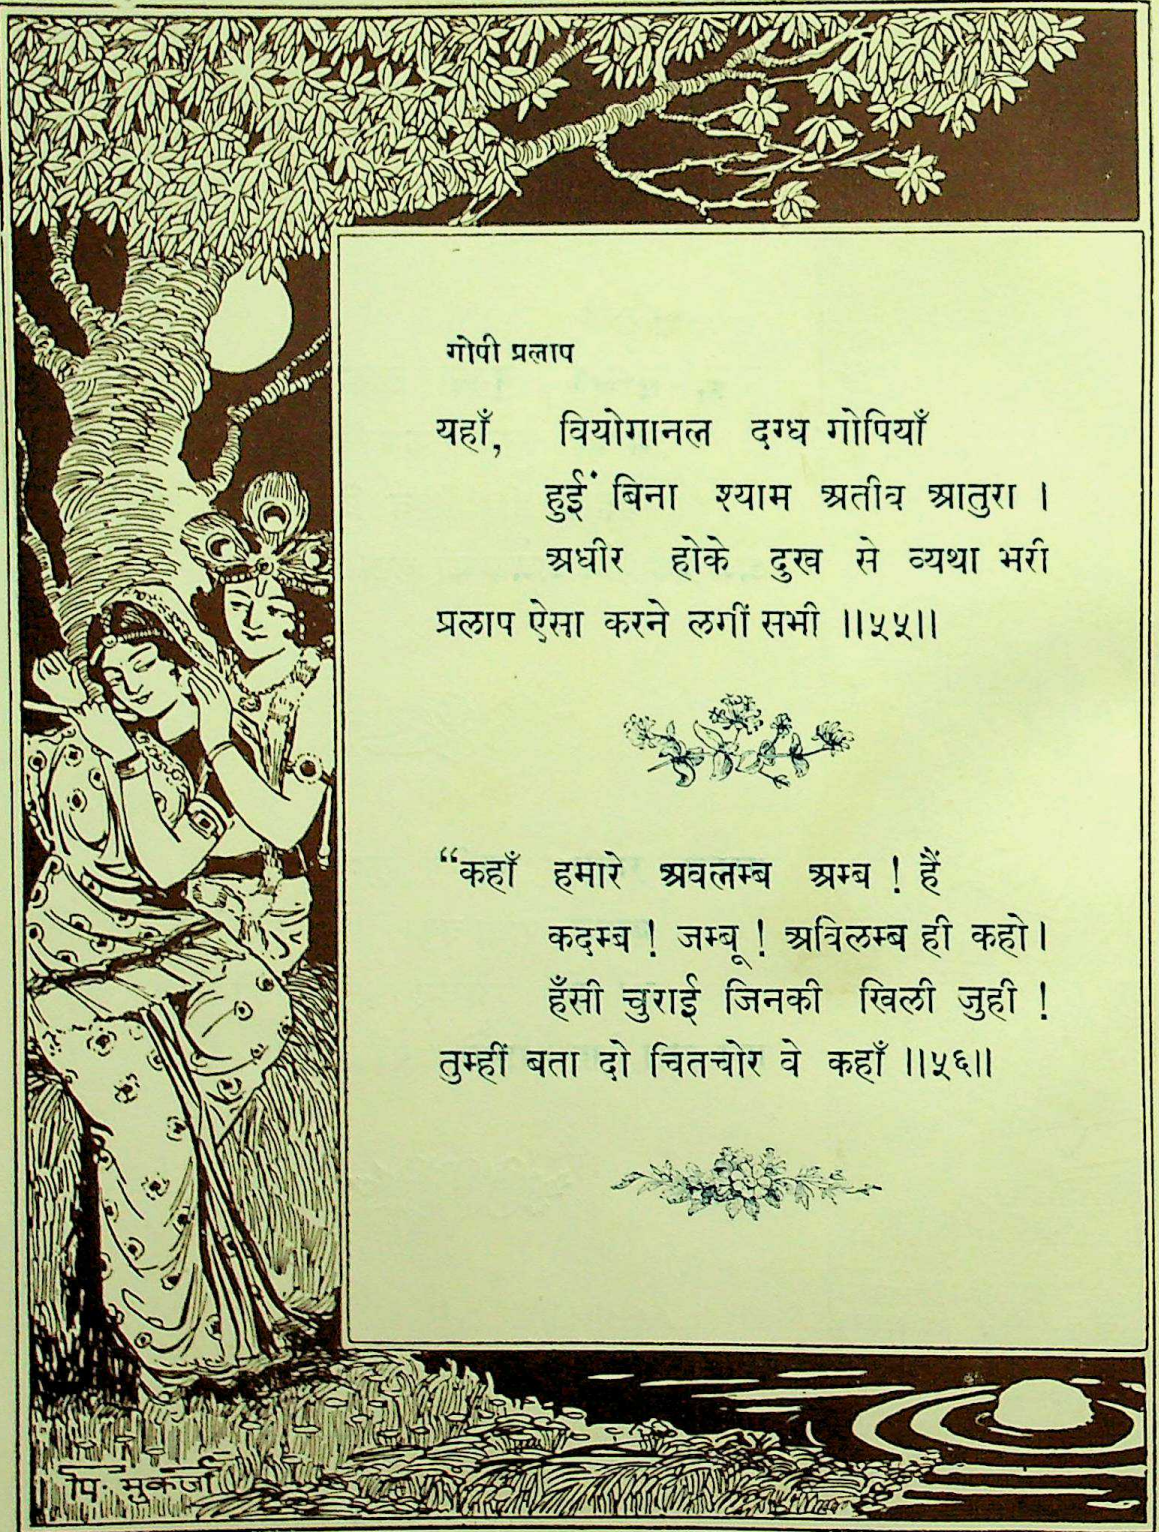 गोपी प्रलाप
यहाँ, वियोगानल दग्ध गोपियाँ
हुईं बिना श्याम अतीव आतुरा ।
अधीर होके दुख से व्यथा भरी
प्रलाप ऐसा करने लगीं सभी ।।५५।।
“कहाँ हमारे अवलम्ब अम्ब ! हैं
कदम्ब ! जम्बू ! अविलम्ब ही कहो।
हँसी चुराई जिनकी खिली जुही !
तुम्हीं बता दो चितचोर वे कहाँ ।।५६।।
पि. मुकर्जी